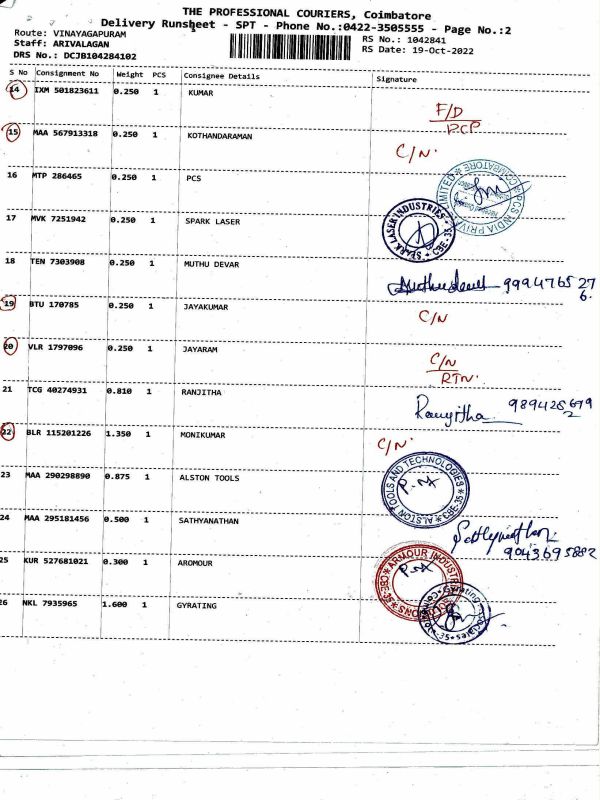 THE PROFESSIONAL COURIERS, Coimbatore
Delivery Runsheet - SPT - Phone No.:0422-3505555 - Page No.:2
Route: VINAYAGAPURAM
Staff: ARIVALAGAN
DRS No.: DCJB104284102
RS No.: 1042841
RS Date: 19-Oct-2022
S No Consignment No Weight PCS Consignee Details Signature
14 IXM 501823611 0.250 1 KUMAR
F/D
RCP
15 MAA 567913318 0.250 1 KOTHANDARAMAN
C/N.
16 MTP 286465 0.250 1 PCS
PCS INDIA PRIVATE LIMITED * COIMBATORE
17 MVK 7251942 0.250 1 SPARK LASER
SPARK LASER INDUSTRIES * CBE-35 *
18 TEN 7303908 0.250 1 MUTHU DEVAR
19 BTU 170785 0.250 1 JAYAKUMAR
C/N
20 VLR 1797096 0.250 1 JAYARAM
C/N
RTN.
21 TCG 40274931 0.810 1 RANJITHA
Ranjitha
22 BLR 115201226 1.350 1 MONIKUMAR
C/N.
23 MAA 290298890 0.875 1 ALSTON TOOLS
ALSTON TOOLS AND TECHNOLOGIES * CBE-35 *
24 MAA 295181456 0.500 1 SATHYANATHAN
Sathyanathan
9043695882
25 KUR 527681021 0.300 1 AROMOUR
26 NKL 7935965 1.600 1 GYRATING